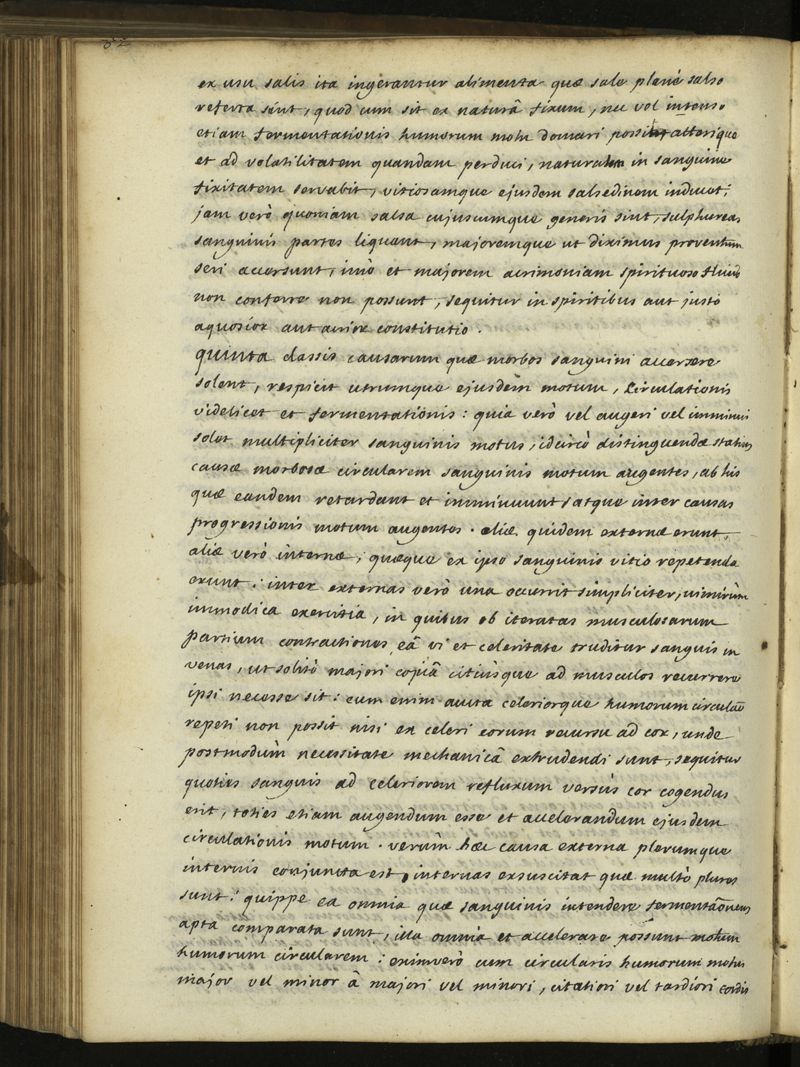 82
ex usu salis ita ingerantur alimenta quæ sale planè salso
referta sint, quod cum sit ex naturâ fixum, nec vel intenso
etiam fermentationis humorum motu domari possit atterique
et ad volatilitatem quandam perduci, naturalem in sanguine
fixitatem servabit, vitiosamque ejusdem salsedinem inducet;
jam verò quoniam salsa cujuscumque generis sint, sulphureas
sanguinis partes liquant, majoremque ut diximus proventum
seri accersunt, imò et majorem acrimoniam spirituoso fluido
non conferre non possunt, sequitur in spiritibus aut justo
aquosior aut acrior constitutio.
quinta classis causarum quæ morbos sanguini accersere
solent, respicit utrumque ejusdem motum, Circulationis
videlicet et fermentationis: quia verò vel augeri vel imminui
solet multipliciter sanguinis motus, idcircò distinguendæ statim
causæ morbosæ circularem sanguinis motum augentes, ab his
quæ eandem retardant et imminuunt, atque inter causas
progressionis motum augentes. aliæ quidem externæ erunt,
aliæ verò internæ, quæque ex ipso sanguinis vitio repetendæ
erunt: inter externas verò una occurrit simpliciter, nimirùm
immodica exercitia, in quibus ob iteratas musculosarum
partium contractiones, eâ vi et celeritate truditur sanguis in
venas, ut solitò majori copiâ citiùsque ad musculos recurrere
ipsi necesse sit: cum enim aucta celeriorque humorum circulaõ
repeti non possit nisi ex celeri eorum recursu ad cor, unde
postmodùm necessitate mechanicâ extrudendi sunt, sequitur
quoties sanguis ad celeriorem refluxum versùs cor cogendus
erit, toties etiam augendum esse et accelerandum ejusdem
circulationis motum. verùm hæc causa externa plerumque
internis conjuncta est, internas exsuscitat quæ multò plures
sunt: quippe ea omnia quæ sanguinis intendere fermentãonem
apta comparata sunt, illa omnia et accelerare possunt motum
humorum circularem: enimverò cum circularis humorum motus
major vel minor à majori vel minori, citatiori vel tardiori cordis